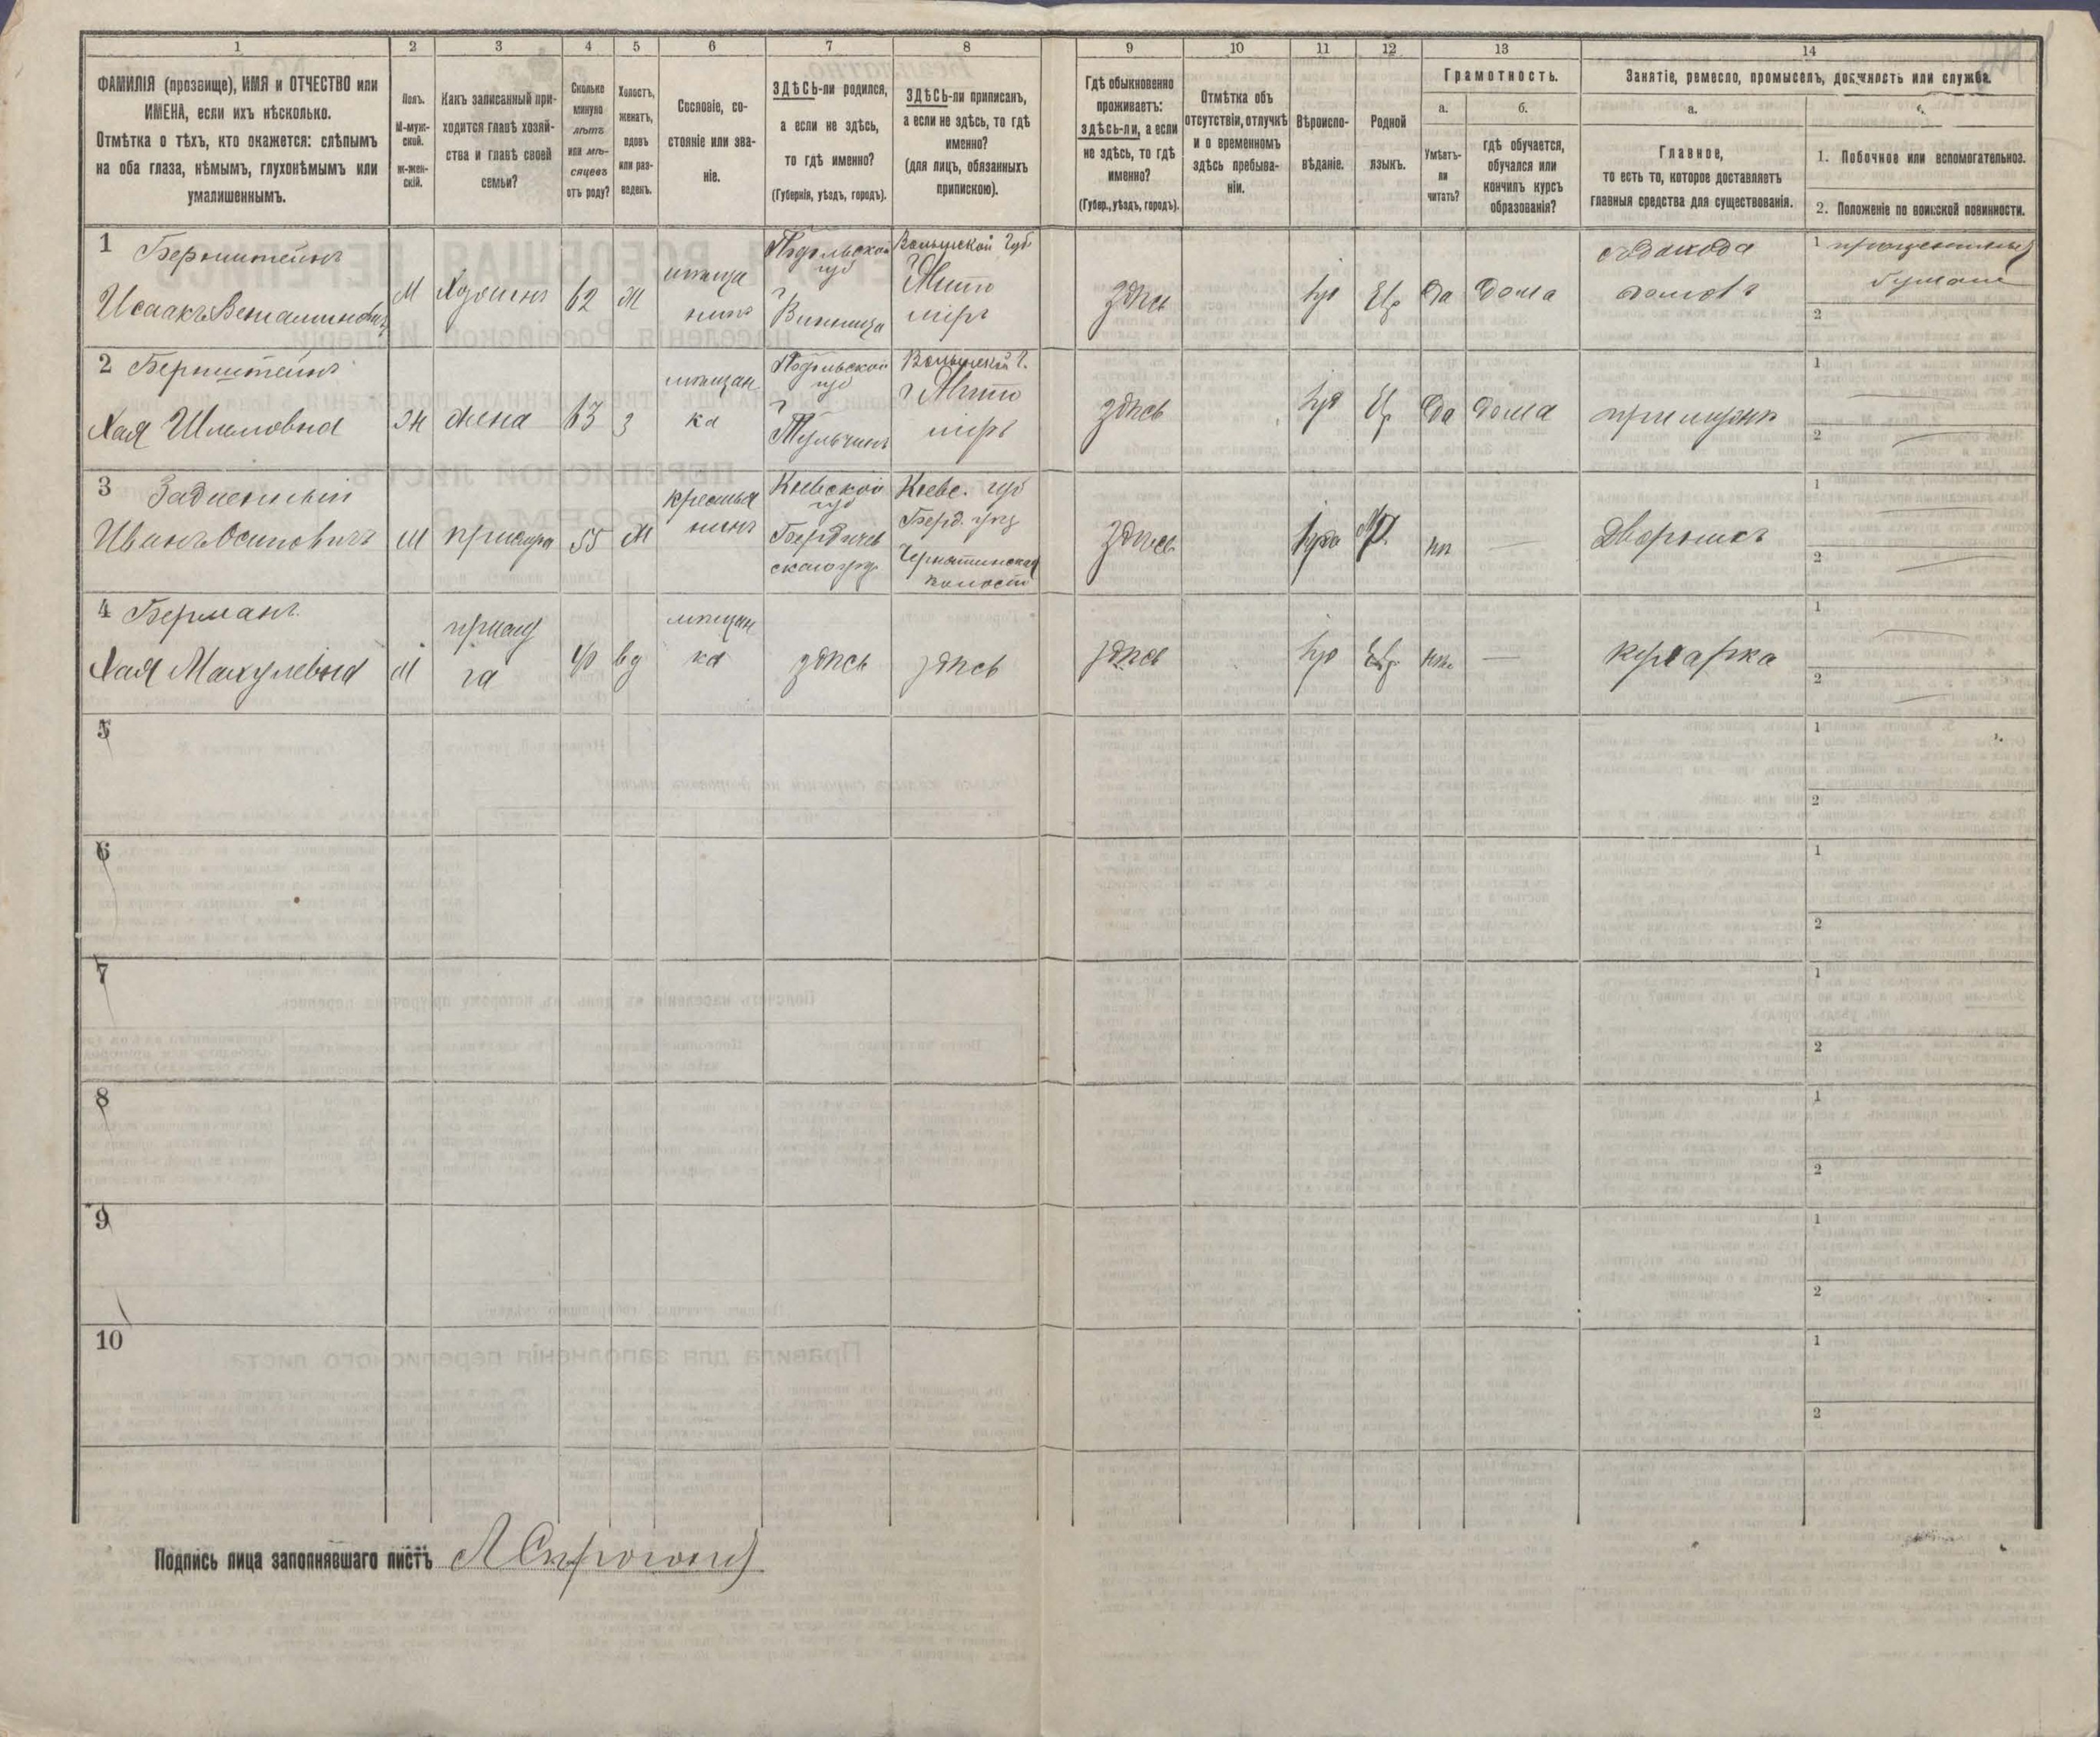 1 2 3 4 5 6 7 8 9 10 11 12 13 14
ФАМИЛІЯ (прозвище), ИМЯ и ОТЧЕСТВО или
ИМЕНА, если ихъ нѣсколько.
Отмѣтка о тѣхъ, кто окажется: слѣпымъ
на оба глаза, нѣмымъ, глухонѣмымъ или
умалишеннымъ.
Полъ.
М-муж-
ской.
ж-жен-
скій.
Какъ записанный при-
ходится главѣ хозяй-
ства и главѣ своей
семьи?
Сколько
минуло
лѣтъ
или мѣ-
сяцевъ
отъ роду?
Холостъ,
женатъ,
вдовъ
или раз-
веденъ.
Сословіе, со-
стояніе или зва-
ніе.
ЗДѢСЬ-ли родился,
а если не здѣсь,
то гдѣ именно?
(Губернія, уѣздъ, городъ).
ЗДѢСЬ-ли приписанъ,
а если не здѣсь, то гдѣ
именно?
(для лицъ, обязанныхъ
припискою).
Гдѣ обыкновенно
проживаетъ:
здѣсь-ли, а если
не здѣсь, то гдѣ
именно?
(Губер., уѣздъ, городъ).
Отмѣтка объ
отсутствіи, отлучкѣ
и о временномъ
здѣсь пребыва-
ніи.
Вѣроиспо-
вѣданіе.
Родной
языкъ.
Грамотность.
а.
Умѣетъ-
ли
читать?
б.
гдѣ обучается,
обучался или
кончилъ курсъ
образованія?
Занятіе, ремесло, промыселъ, должность или служба.
а.
Главное,
то есть то, которое доставляетъ
главныя средства для существованія.
1. Побочное или вспомогательное.
2. Положеніе по воинской повинности.
1 Бернштейнъ
Исаакъ Веніаминовичъ
М Хозяинъ 62 Ж
мѣща
нинъ
Подольской
губ
г Винница
Волынской Губ
г Жито
міръ
здѣсь
Іуд Евр да дома
съ дохода
домовъ
1 процентныя
бумаги
2
2 Бернштейнъ
Хая Шлемовна
Ж жена 63 З
мѣщан
ка
Подольской
губ
г Тульчинъ
Волынской г.
г Жито
міръ
здѣсь
Іуд Ев да дома при мужѣ
1
2
3
Иванъ Осиповичъ
М прислуга 55 Ж
крестья
нинъ
Кіевской
губ
Бердичев
скаго узд
Кіевс. губ
Берд. узд
волости
здѣсь
нѣт — Дворникъ
1
2
4 Берманъ
Хая
прислу
га
40 вд
мѣщан
ка
здѣсь здѣсь здѣсь
Іуд Евр. нѣт — кухарка
1
2
5 1
2
6 1
2
7 1
2
8 1
2
9 1
2
10 1
2
Подпись лица заполнявшаго листъ